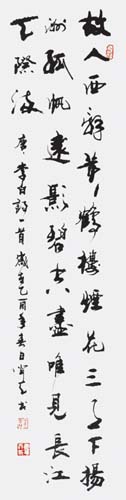 故人西辭黃鶴樓煙花三月下揚
洲孤帆遠影碧空盡唯見長江
天際流
唐李白詩一首歲在乙酉年春日書